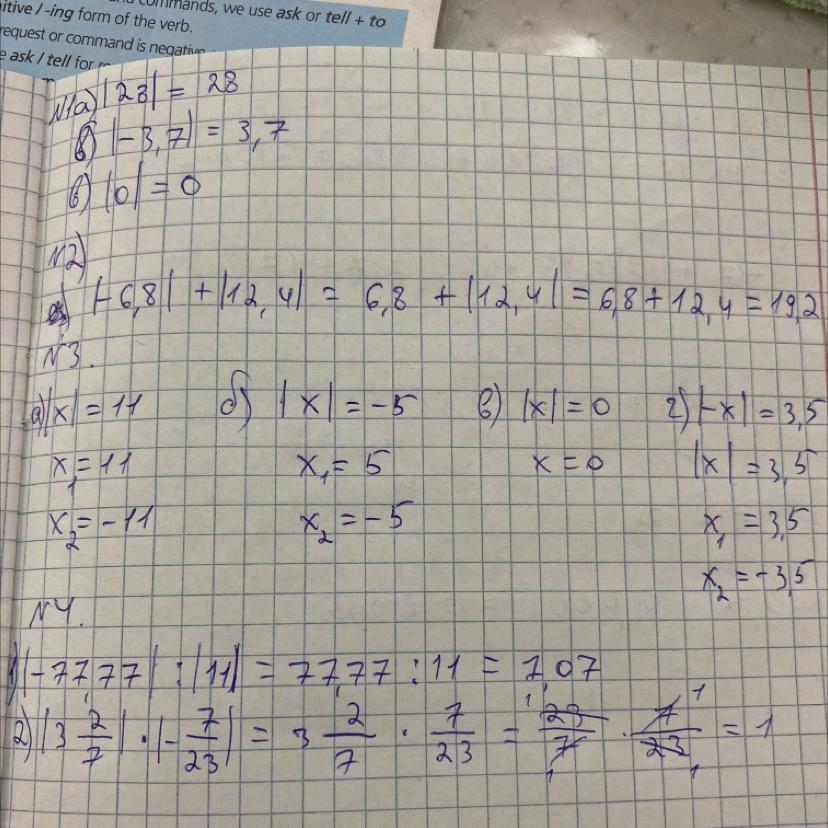 commands, we use ask or tell + to
itive / -ing form of the verb.
request or command is negative
e ask / tell for
N1а) |28| = 28
б) |-3,7| = 3,7
в) |0| = 0
N2)
|-6,8| + |12,4| = 6,8 + |12,4| = 6,8 + 12,4 = 19,2
N3.
а) |x| = 11 б) |x| = -5 в) |x| = 0 г) |-x| = 3,5
x₁ = 11 x₁ = 5 x = 0 |x| = 3,5
x₂ = -11 x₂ = -5 x₁ = 3,5
x₂ = -3,5
N4.
1) |-77,77| : |11| = 77,77 : 11 = 7,07
2) |3 2/7| · |-7/23| = 3 2/7 · 7/23 = 23/7 · 7/23 = 1